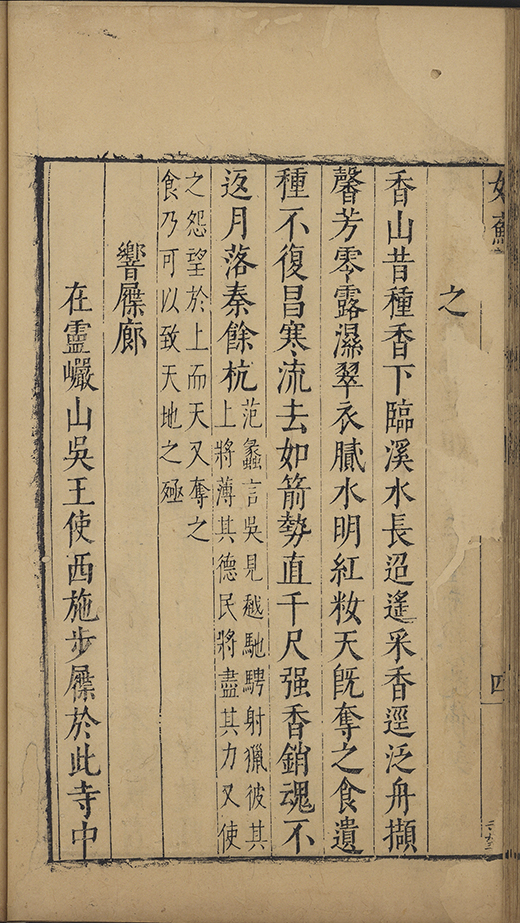 之
香山昔種香下臨溪水長迢遙采香逕泛舟擷
馨芳零露濕翠衣膩水明紅妝天既奪之食遺
種不復昌寒流去如箭勢直千尺强香銷魂不
返月落秦餘杭
范蠡言吳見越馳騁射獵彼其
上將薄其德民將盡其力又使
之怨望於上而天又奪之
食乃可以致天地之殛
響屧廊
在靈巖山吳王使西施步屧於此寺中
四